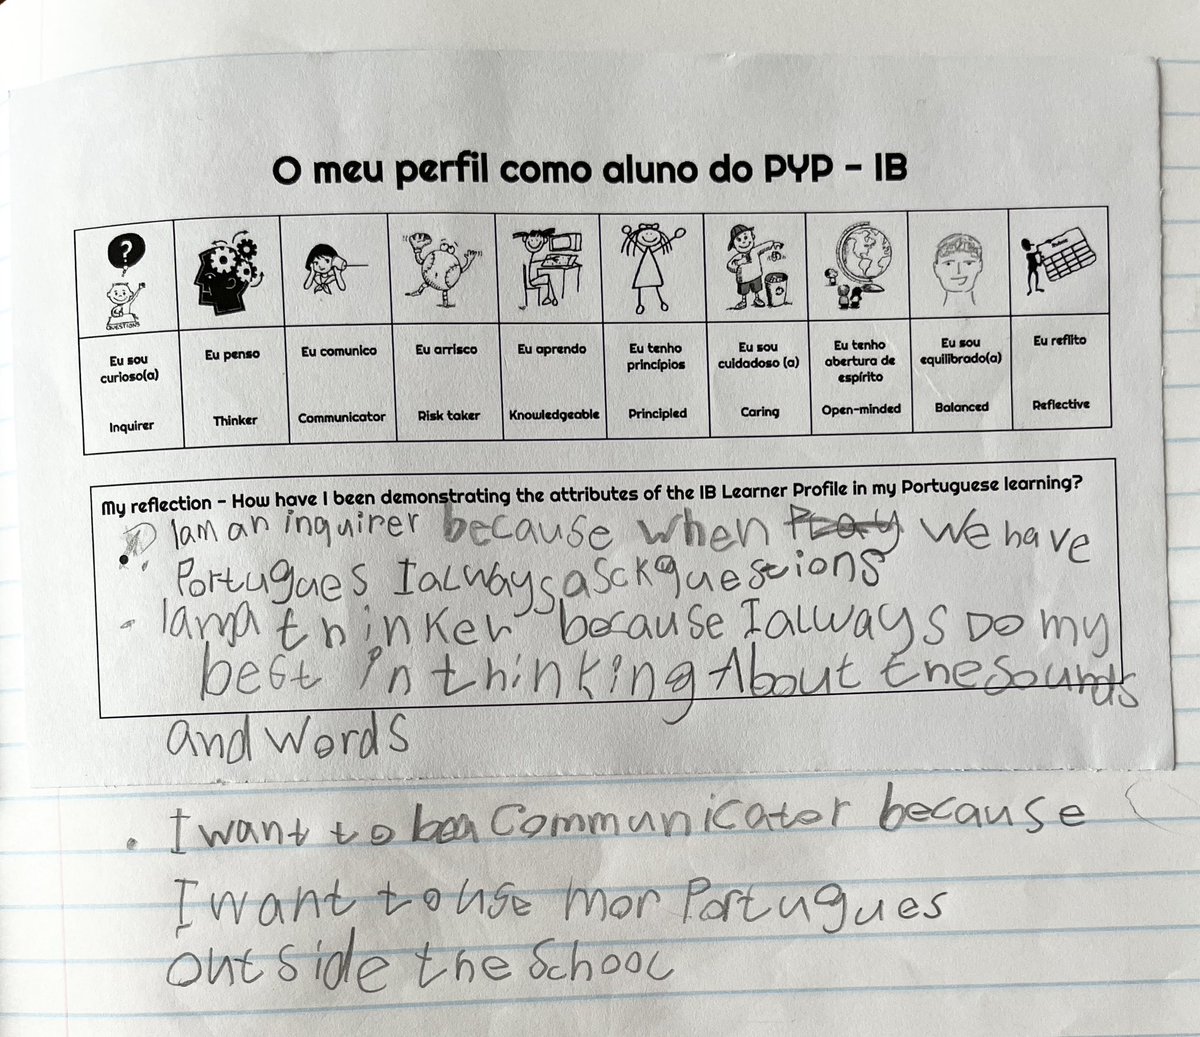 O meu perfil como aluno do PYP - IB
?
QUESTIONS
Eu sou curioso(a)
Eu penso
Eu comunico
Eu arrisco
Eu aprendo
Eu tenho princípios
Eu sou cuidadoso (a)
Eu tenho abertura de espírito
Eu sou equilibrado(a)
Eu reflito
Inquirer
Thinker
Communicator
Risk taker
Knowledgeable
Principled
Caring
Open-minded
Balanced
Reflective
My reflection - How have I been demonstrating the attributes of the IB Learner Profile in my Portuguese learning?
Iam an inquirer because when We have
Portugues I always asck questions
- Iam a thinker because I always Do my
best in thinking About the Sounds
and words
. I want to be a Communicator because
I want to use mor Portugues
outside the School